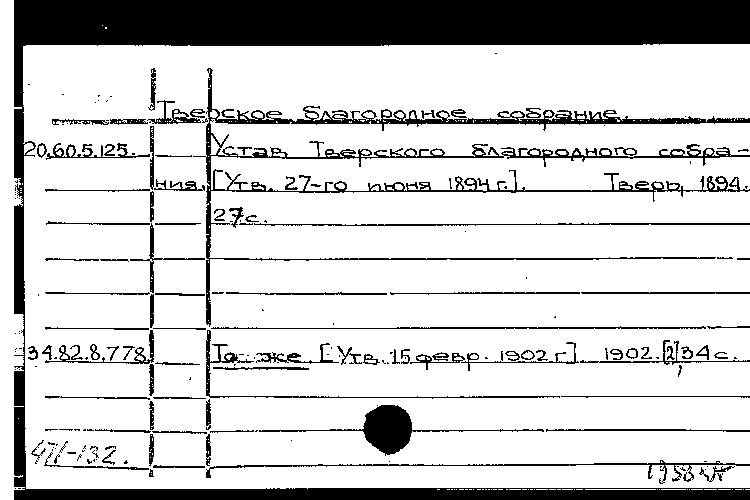 Тверское благородное собрание.
20.60.5.125. Устав Тверского благородного собра-
ния. [Утв. 27-го июня 1894 г.]. Тверь, 1894.
27с.
34.82.8.778. То же. [Утв. 15 февр. 1902 г]. 1902. [2], 34 с.
-132.